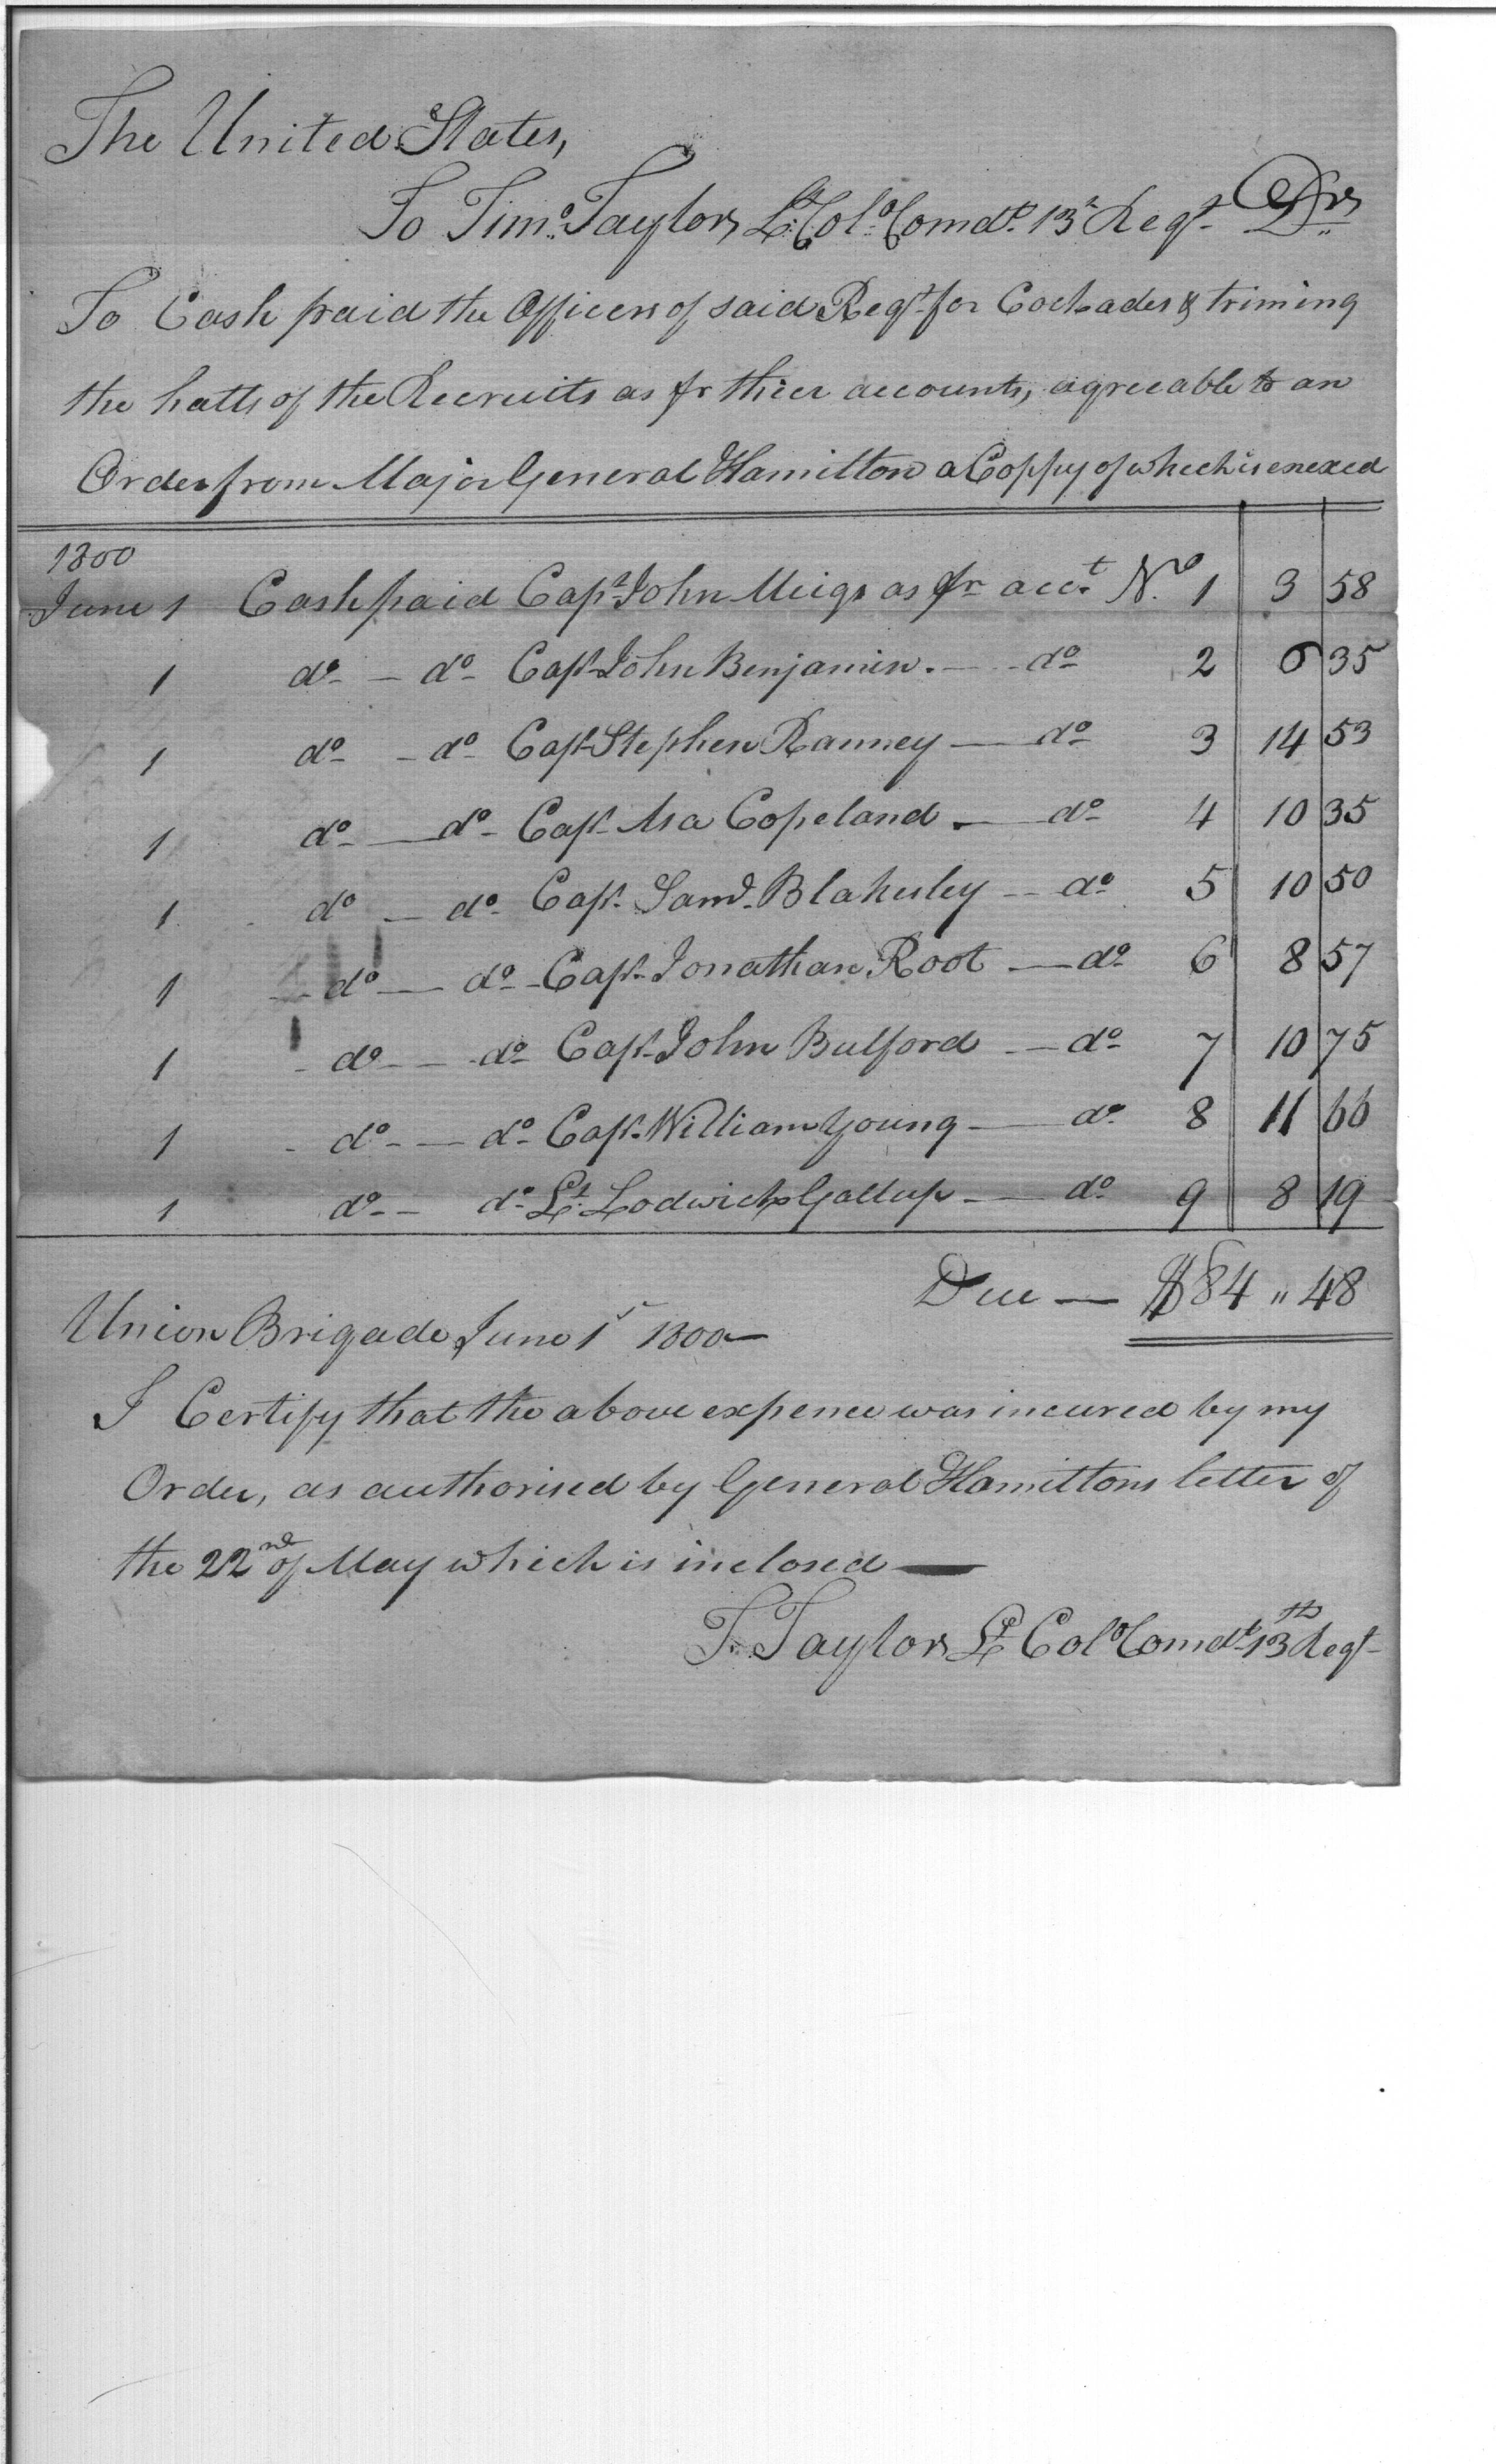 The United States,
To Timo. Taylor, Lt. Colo. Comdt. 13th Regt. Dr.
To Cash paid the Officers of said Regt. for Cockades & triming
the hatts of the Recruits as pr thier accounts, agreeable to an
Order from Major General Hamilton a Coppy of which is enexed
1800
June 1 Cash paid Capt. John Meigs as pr acct. No. 1 3 58
1 do - do Capt. John Benjamin. - do 2 6 35
1 do - do Capt. Stephen Ranney - do 3 14 53
1 do - do Capt. Asa Copeland - do 4 10 35
1 do - do Capt. Saml. Blakesley - do 5 10 50
1 do - do - Capt. Jonathan Root - do 6 8 57
1 do - do Capt. John Bulford - do 7 10 75
1 do - do Capt. William Young - do 8 11 66
1 do - do Lt. Lodwick Gallup - do 9 8 19
Due - $84 " 48
Union Brigade June 1st 1800 -
I Certify that the above expence was incured by my
Order, as authorised by General Hamiltons letter of
the 22nd of May which is inclosed -
T. Taylor Lt. Colo. Comdt. 13th Regt.